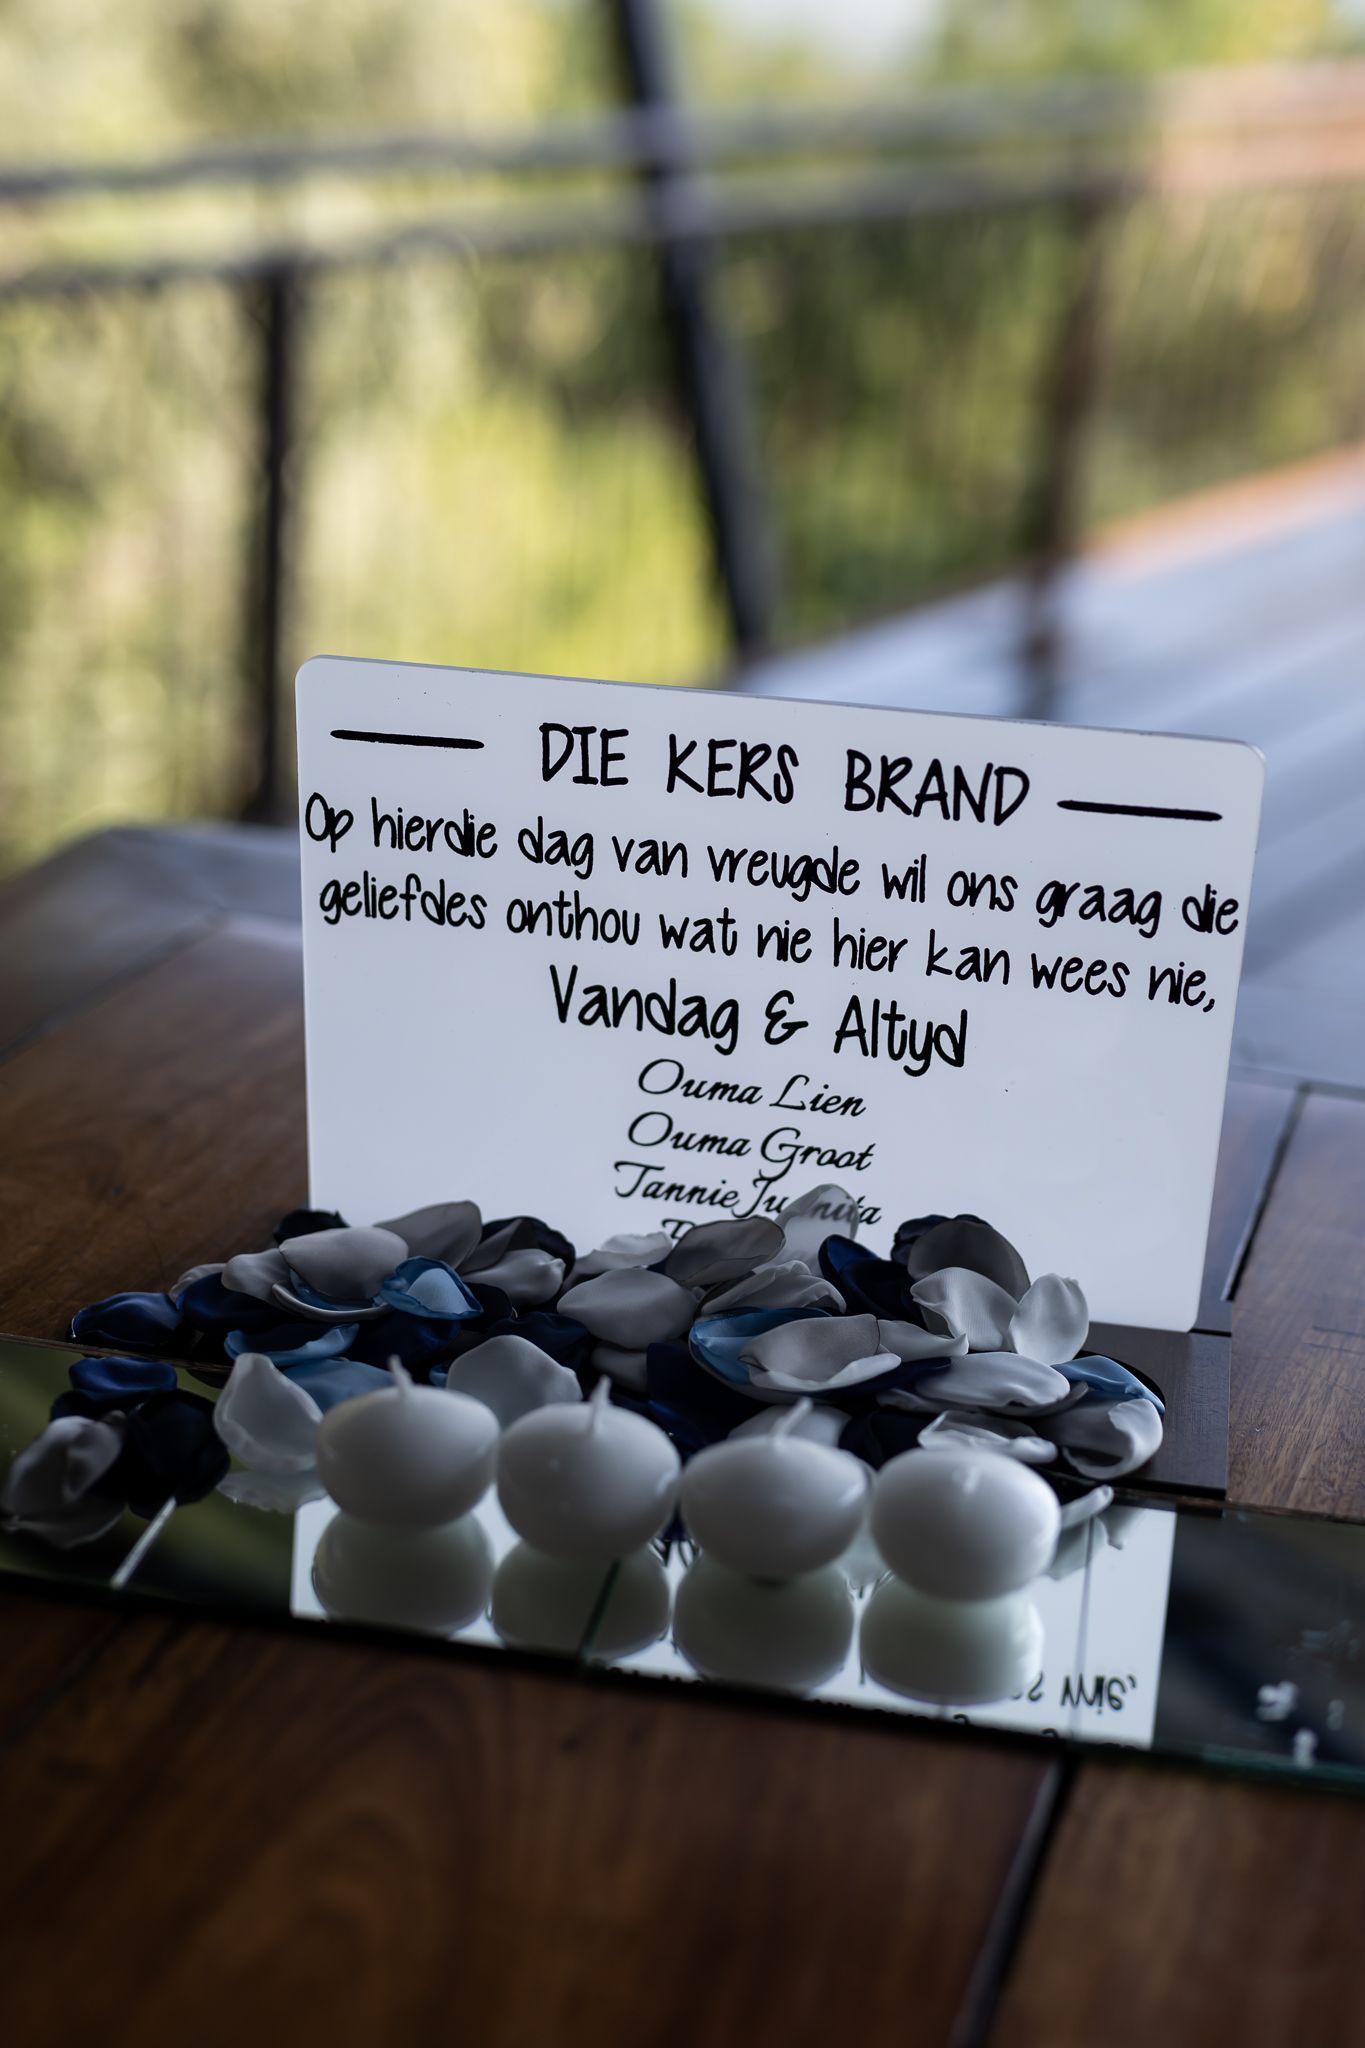 DIE KERS BRAND
Op hierdie dag van vreugde wil ons graag die
geliefdes onthou wat nie hier kan wees nie,
Vandag & Altyd
Ouma Lien
Ouma Groot
Tannie Juanita